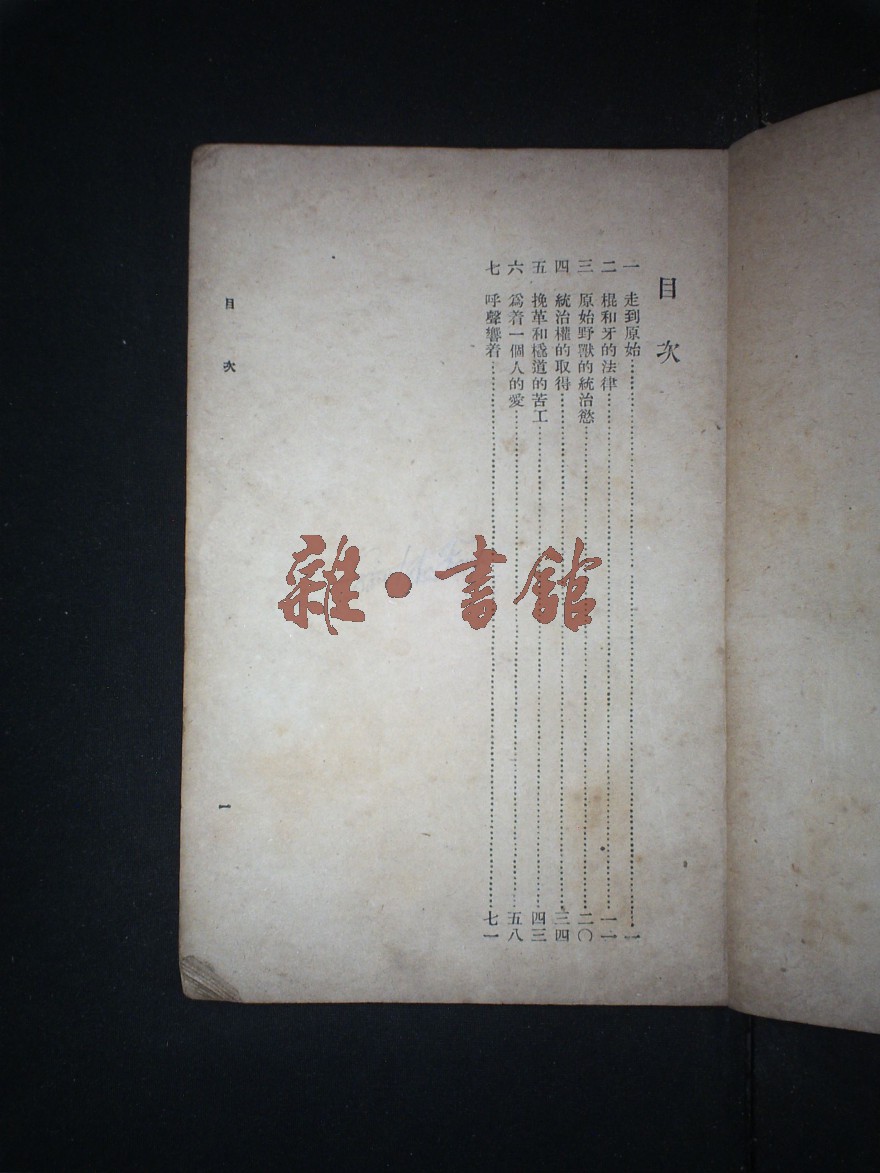 目次
一 走到原始 一
二 棍和牙的法律 一二
三 原始野獸的統治慾 二〇
四 統治權的取得 三四
五 挽革和橇道的苦工 四三
六 爲着一個人的愛 五八
七 呼聲響着 七一
目次
一
雜・書館